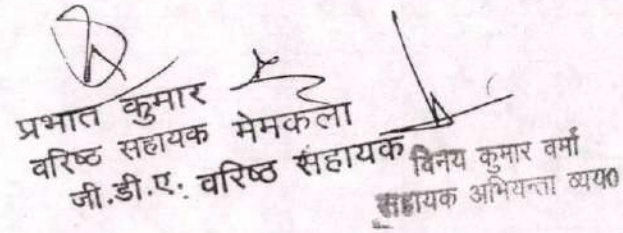 प्रभात कुमार
वरिष्ठ सहायक मेमकला
जी.डी.ए. वरिष्ठ सहायक
विनय कुमार वर्मा
सहायक अभियन्ता व्यय०